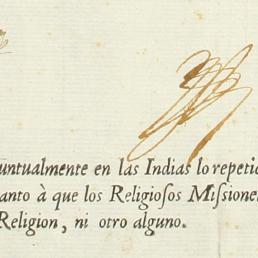 untualmente en las Indias lo repetid
anto à que los Religiosos Missione
Religion, ni otro alguno.